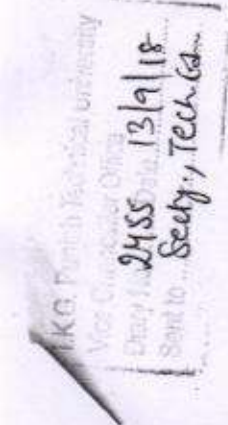 I.K.G. Punjab Technical University
Vice Chancellor Office
Diary No. 2455 Date 13/9/18
Sent to Secty., Tech Edn.